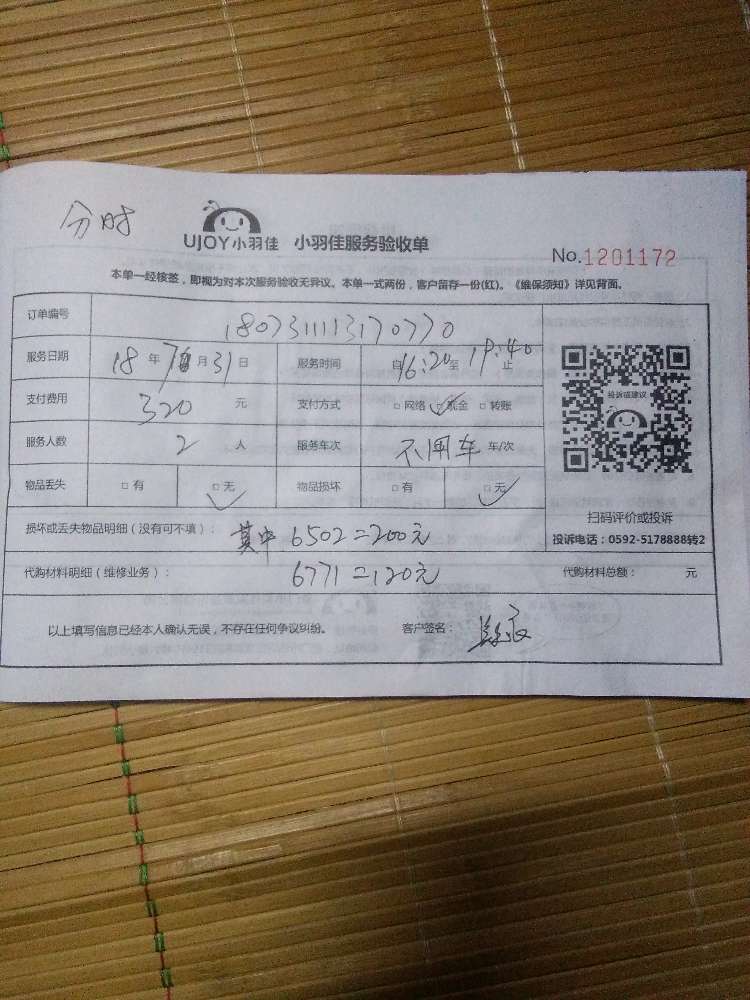 分时
UJOY小羽佳 小羽佳服务验收单
No.1201172
本单一经核签，即视为对本次服务验收无异议。本单一式两份，客户留存一份(红)。《维保须知》详见背面。
订单编号 180731113170770
服务日期 18 年 7 月 31 日 服务时间 自 16:20 至 19:40 止
支付费用 320 元 支付方式 □网络 ☑现金 □转账
投诉或建议
服务人数 2 人 服务车次 不用车 车/次
物品丢失 □有 ☑无 物品损坏 □有 ☑无
扫码评价或投诉
损坏或丢失物品明细（没有可不填）： 其中 6502=200元
投诉电话：0592-5178888转2
代购材料明细（维修业务）： 6771=120元 代购材料总额： 元
以上填写信息已经本人确认无误，不存在任何争议纠纷。 客户签名：